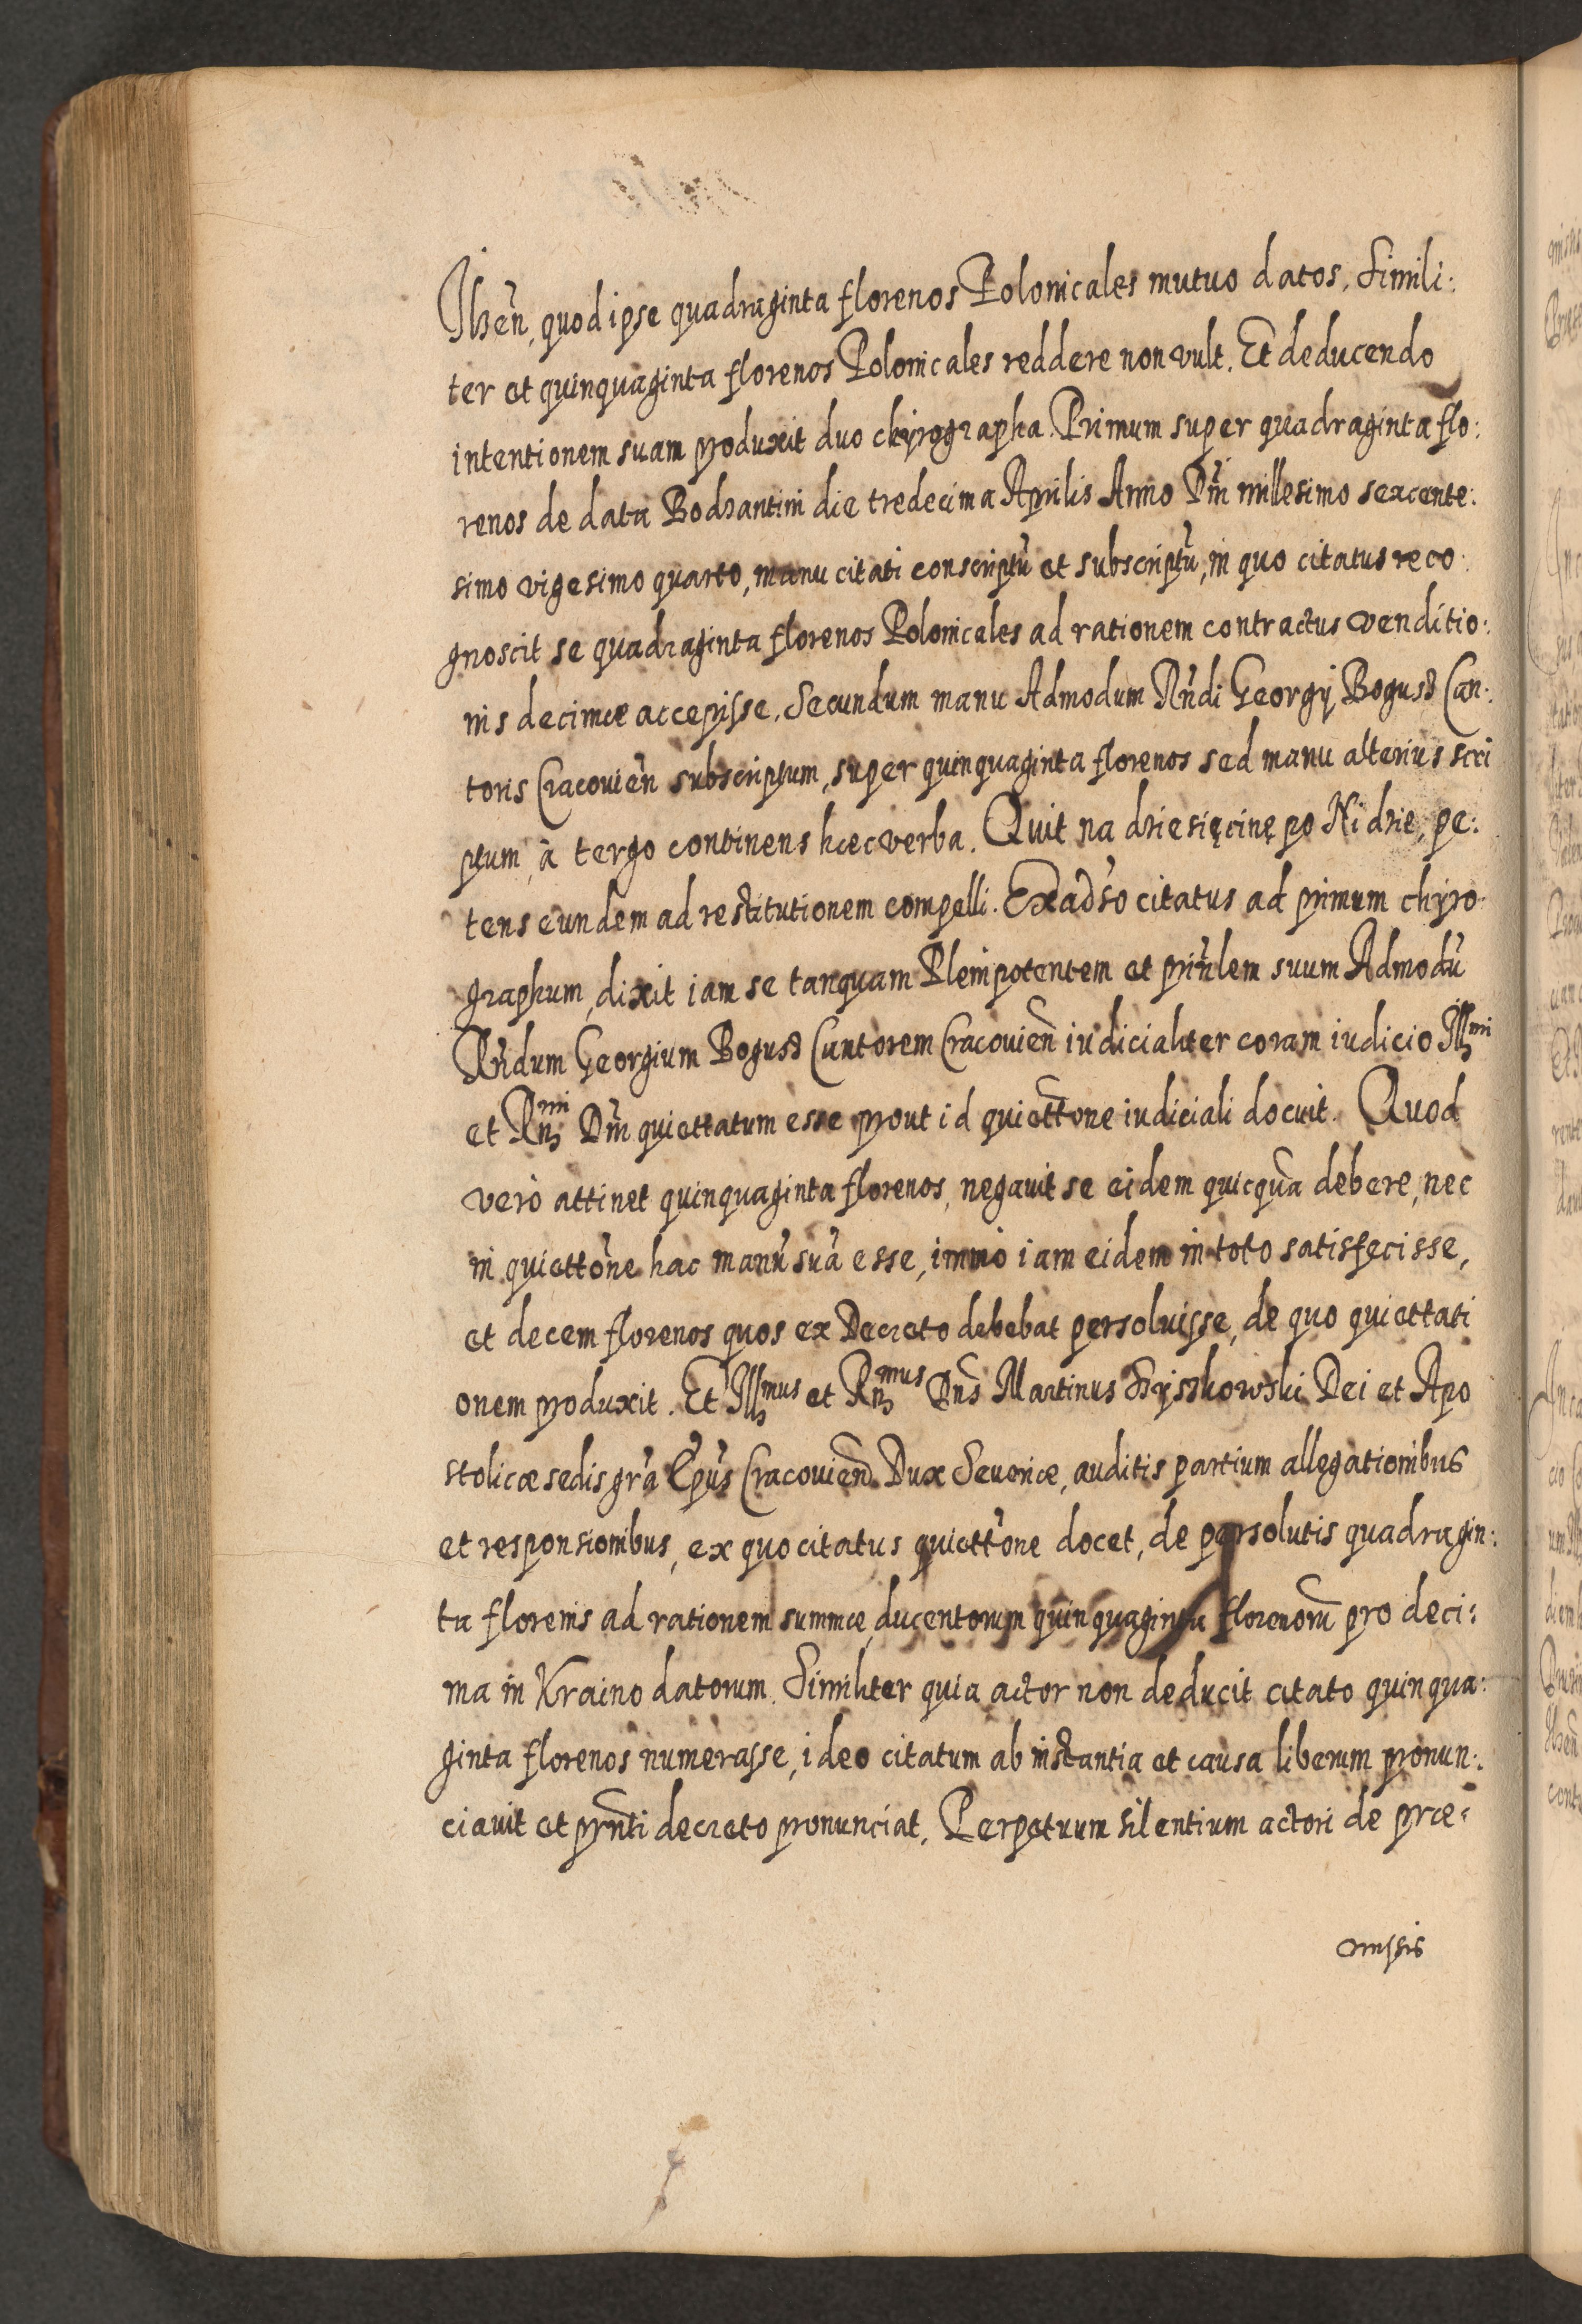 Ilzeñ, quod ipse quadraginta florenos Polonicales mutuo datos. Simili:
ter et quinquaginta florenos Polonicales reddere non vult. Et deducendo
intentionem suam produxit duo chyrographa. Primum super quadraginta flo:
renos de data Bodzantini die tredecima Aprilis Anno Dñi millesimo sexcente:
simo vigesimo quarto, manu citati conscriptũ et subscriptũ, in quo citatus reco:
gnoscit se quadraginta florenos Polonicales ad rationem contractus venditio:
nis decimæ accepisse. Secundum manu Admodum Rñdi Georgij Bogusz Can:
toris Cracovieñ subscriptum, super quinquaginta florenos sed manu alterius scri
ptum, à tergo continens hæc verba. Quit na dziesięcinę po Nidzie, pe:
tens eundem ad restitutionem compelli. Ex adṽso citatus ad primum chyro:
graphum, dixit iam se tanquam Plenipotentem et prin̄lem suum Admodũ
Rñdum Georgium Bogusz Cantorem Cracovieñ iudicialiter coram iudicio Illmi
et Rmi Dñi quiettatum esse prout id quiettõne iudiciali docuit. Quod
verò attinet quinquaginta florenos, negavit se eidem quicquã debere, nec
in quiettõne hac manũ suã esse, immò iam eidem in toto satisfecisse,
et decem florenos quos ex Decreto debebat persoluisse, de quo quiettati
onem produxit. Et Illmus et Rmus Dñs Martinus Szyszkowski Dei et Apo
stolicæ sedis grã Ep̃us Cracovieñ Dux Severiæ, auditis partium allegationibus
et responsionibus, ex quo citatus quiettõne docet, de persolutis quadragin:
ta florenis ad rationem summæ ducentorum quinquaginta florenorũ pro deci:
ma in Kraino datorum. Similiter quia actor non deducit citato quinqua:
ginta florenos numerasse, ideo citatum ab instantia et causa liberum pronun:
ciavit et prñti decreto pronunciat. Perpetuum silentium actori de præ:
missis